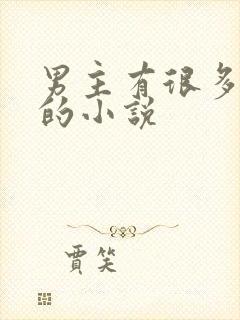 男主有很多
的小说
贾笑